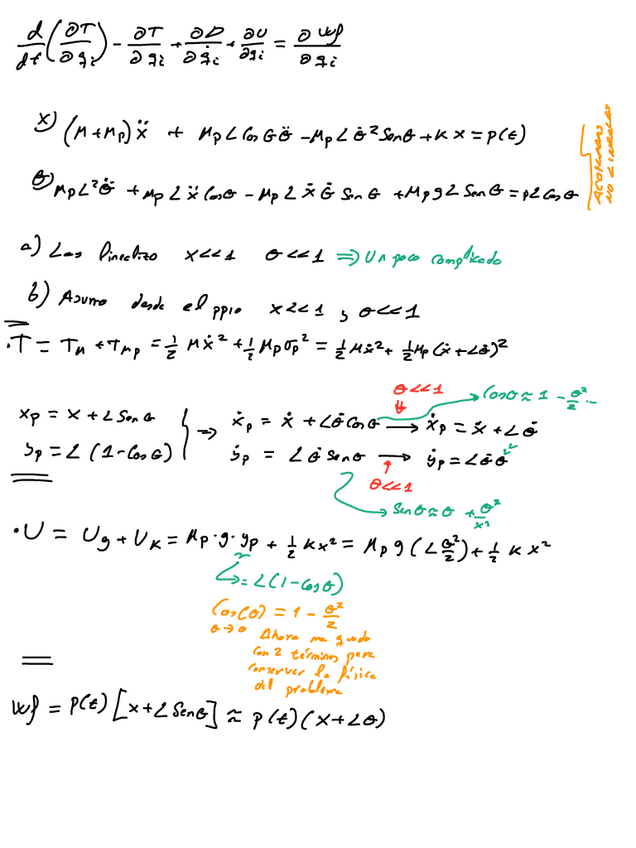 d/dt (∂T/∂q̇i) - ∂T/∂qi + ∂D/∂q̇i + ∂U/∂qi = ∂Wf/∂qi
x) (M+Mp)ẍ + MpL Cosθ θ̈ - MpL θ̇² Senθ + Kx = p(t)
θ) MpL²θ̈ + MpLẍ Cosθ - MpL ẋ θ̇ Senθ + MpgL Senθ = pL Cosθ
ACOPLADAS
NO LINEALES
a) Las linealizo x<<1 θ<<1 ⇒ Un poco complicado
b) Asumo desde el ppio x<<1 y θ<<1
·T = TM + TMp = 1/2 Mẋ² + 1/2 Mp σp² = 1/2 Mẋ² + 1/2 Mp (ẋ+Lθ̇)²
θ<<1
Cosθ ≈ 1 - θ²/2 ...
xp = x + L Senθ } → ẋp = ẋ + Lθ̇ Cosθ → ẋp = ẋ + Lθ̇
yp = L (1-Cosθ) ẏp = Lθ̇ Senθ → ẏp = Lθ̇θ
θ<<1
Senθ ≈ θ
·U = Ug + UK = Mp·g·yp + 1/2 Kx² = Mp g (L θ²/2) + 1/2 K x²
= L(1-Cosθ)
Cos(θ) = 1 - θ²/2
θ→0 Ahora me quedo
con 2 términos para
conservar la física
del problema
Wf = p(t) [x+L Senθ] ≈ p(t) (x+Lθ)